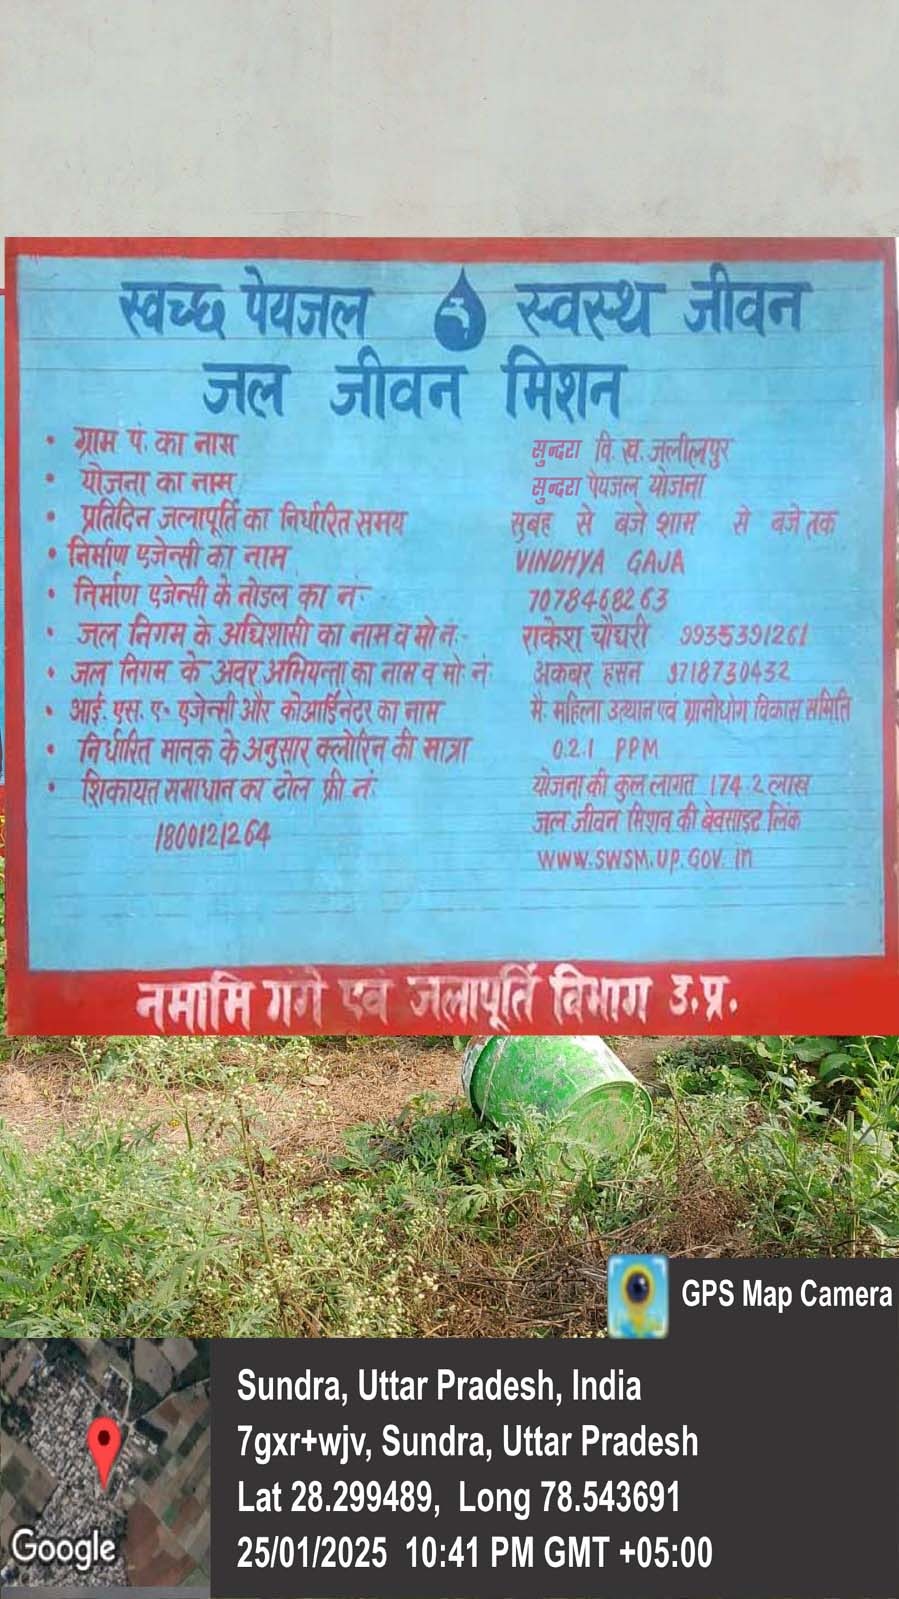 स्वच्छ पेयजल स्वस्थ जीवन
जल जीवन मिशन
• ग्राम पं. का नाम सुन्दरा वि.ख. जलीलपुर
• योजना का नाम सुन्दरा पेयजल योजना
• प्रतिदिन जलापूर्ति का निर्धारित समय सुबह से बजे शाम से बजे तक
• निर्माण एजेन्सी का नाम VINDHYA GAJA
• निर्माण एजेन्सी के नोडल का नं- 7078468263
• जल निगम के अधिशासी का नाम व मो नं.- राकेश चौधरी 9935391261
• जल निगम के अवर अभियन्ता का नाम व मो. नं. अकबर हसन 9718730432
• आई. एस. ए. एजेन्सी और कोआर्डिनेटर का नाम मै. महिला उत्थान एवं ग्रामोधोग विकास समिति
• निर्धारित मानक के अनुसार क्लोरिन की मात्रा 0.2.1 PPM
• शिकायत समाधान का टोल फ्री नं. योजना की कुल लागत 174.2 लाख
1800121264 जल जीवन मिशन की बेवसाइट लिंक
www.SWSM.UP.GOV.in
नमामि गंगे एवं जलापूर्ति विभाग उ.प्र.
GPS Map Camera
Sundra, Uttar Pradesh, India
7gxr+wjv, Sundra, Uttar Pradesh
Lat 28.299489, Long 78.543691
25/01/2025 10:41 PM GMT +05:00
Google